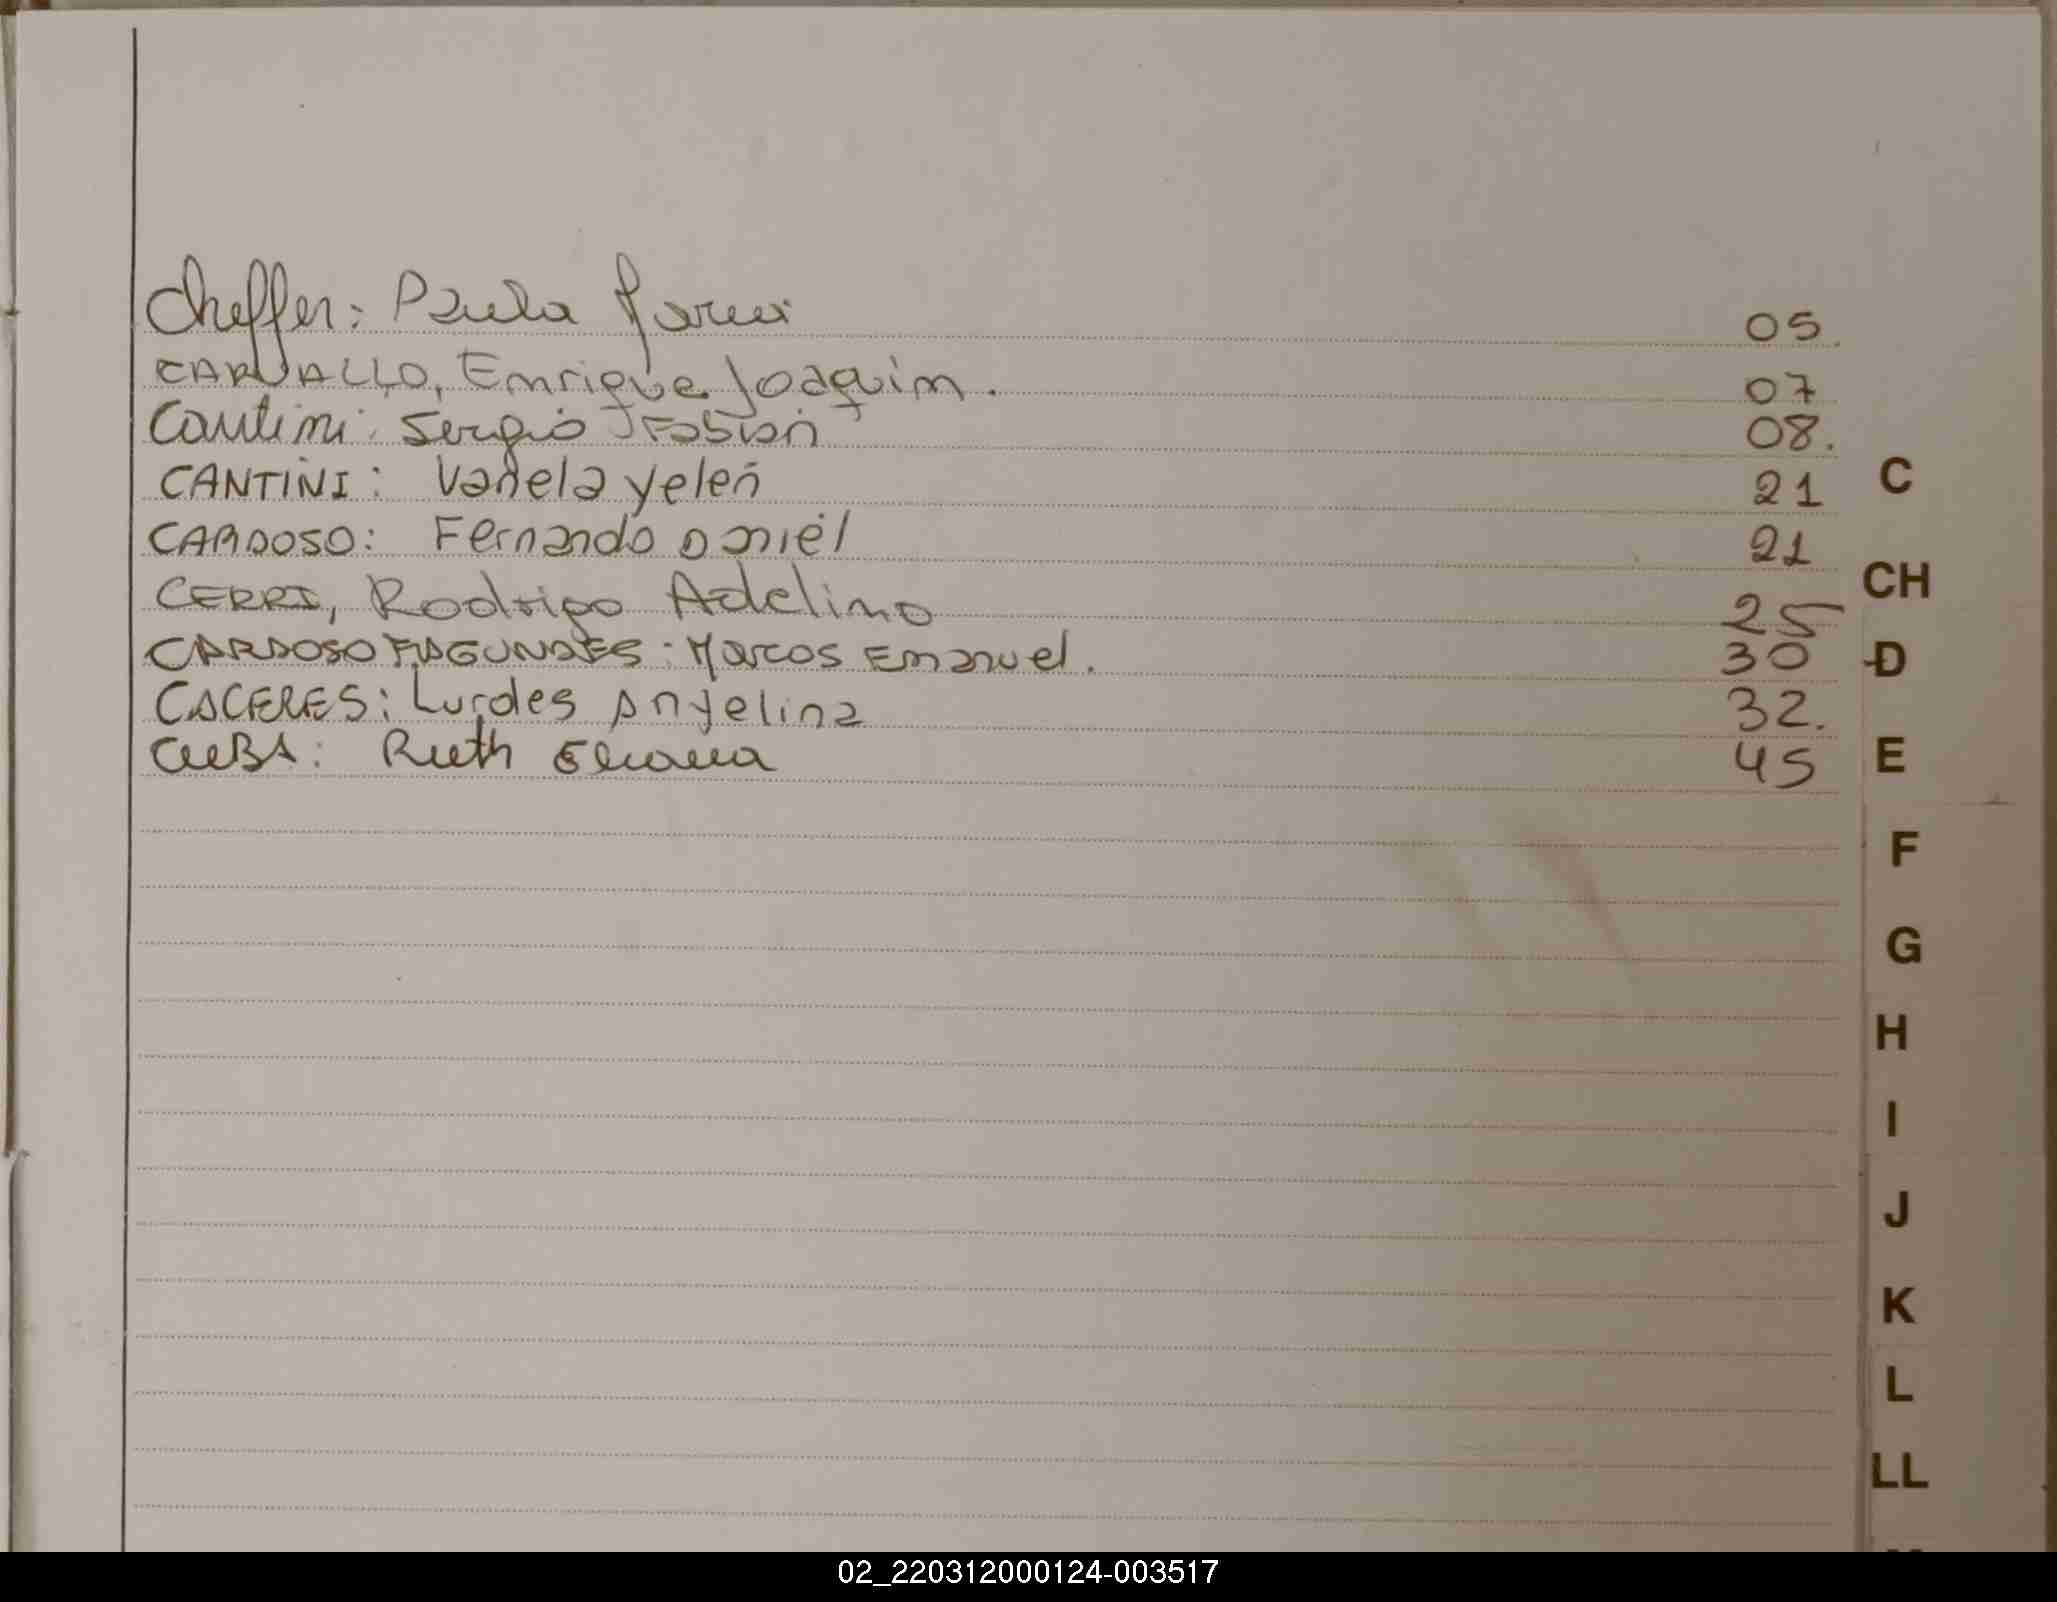 Cheffer: Paula 05.
CARVALLO, Enrique Joaquim. 07
Cantini: Sergio Fabian 08.
CANTINI: Vanela yelen 21
CARDOSO: Fernando Daniel 21
CERRI, Rodrigo Adelimo 25
CARDOSO FAGUNDES: Marcos Emanuel. 30
CACERES: Lurdes Anjelina 32.
CUBA: Ruth Eliana 45
C
CH
D
E
F
G
H
I
J
K
L
LL
02_220312000124-003517